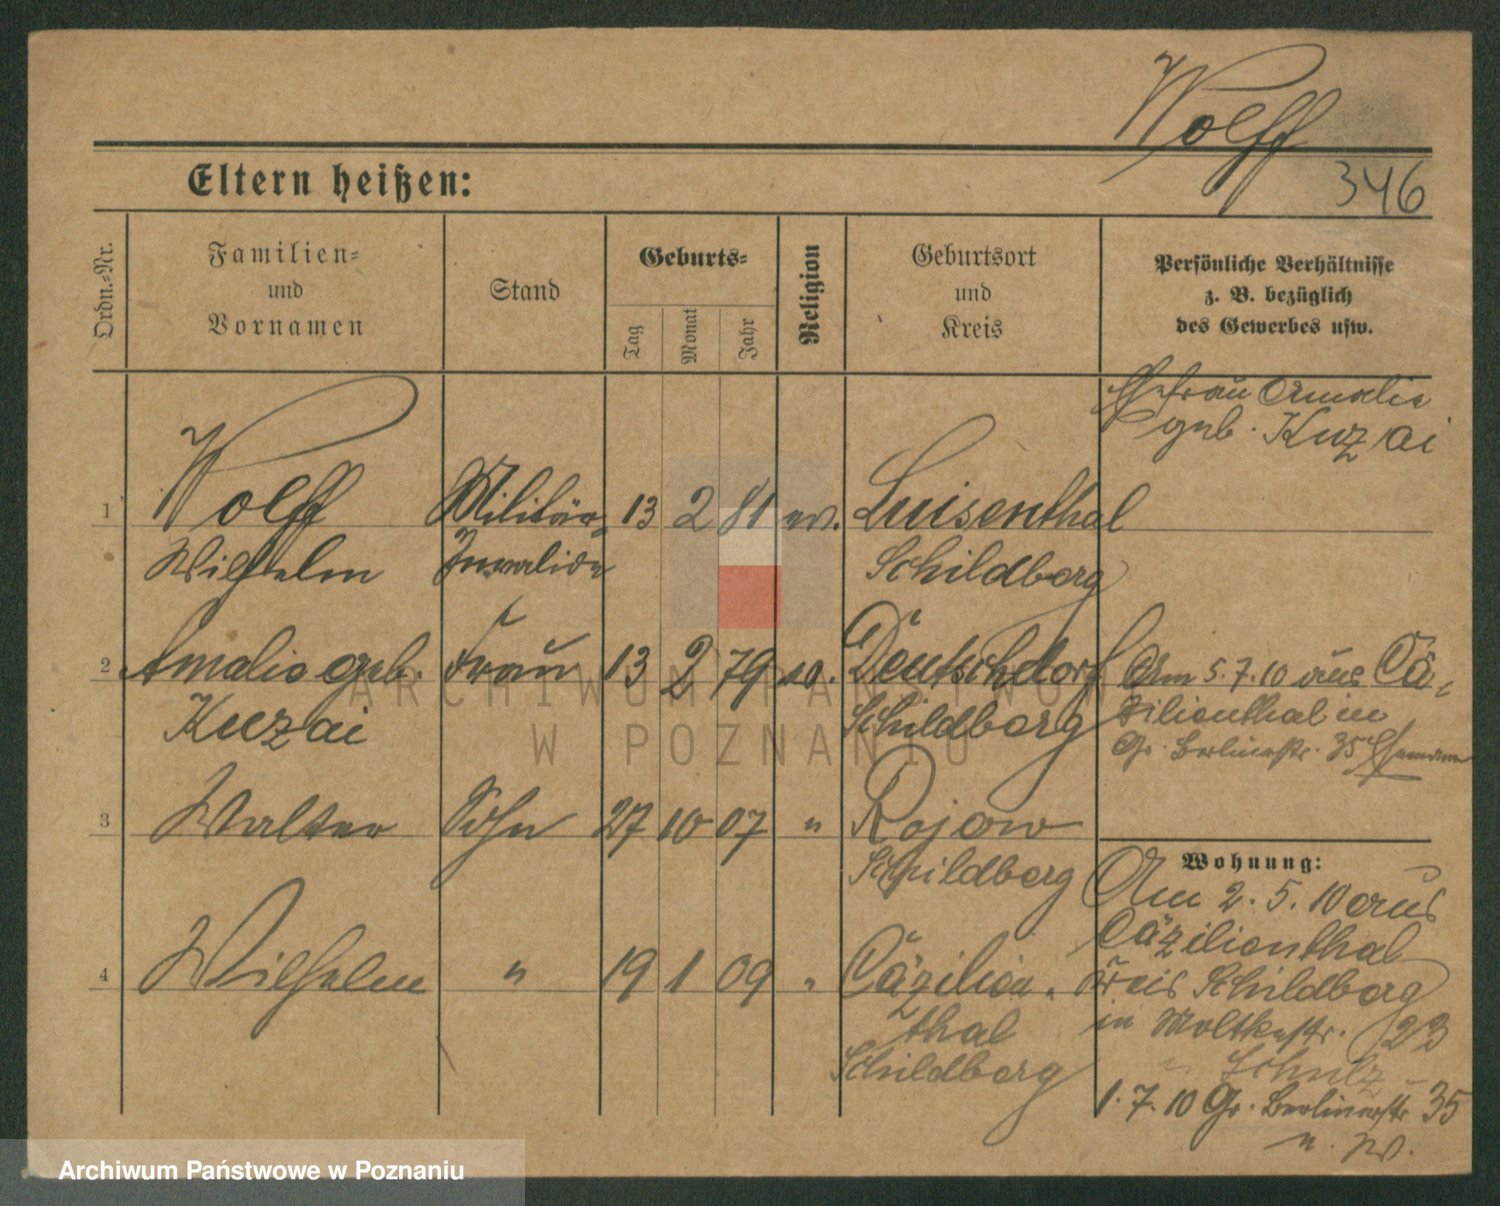 Wolff
346
Eltern heißen:
Ordn.-Nr.
Familien-
und
Vornamen
Stand
Geburts-
Tag
Monat
Jahr
Religion
Geburtsort
und
Kreis
Persönliche Verhältnisse
z. B. bezüglich
des Gewerbes usw.
Ehefrau Amalie
geb. Kuzai
1 Wolff Militär- 13 2 81 ev. Luisenthal
Wilhelm Invalide Schildberg
2 Amalie geb. Frau 13 2 79 Deutschdorf
Kuzai Schildberg
Am 5.7.10 aus Cä-
zilienthal in
Gr. Berlinerstr. 35 Ehemann
3 Walter Sohn 27 10 07 " Rojow
Schildberg
4 Wilhelm " 19 1 09 " Cäzilien-
thal
Schildberg
Wohnung:
Am 2.5.10 aus
Cäzilienthal
Kreis Schildberg
in Moltkestr. 23
Schulz
1.7.10 Gr. Berlinerstr. 35
ARCHIWUM PAŃSTWOWE
W POZNANIU
Archiwum Państwowe w Poznaniu